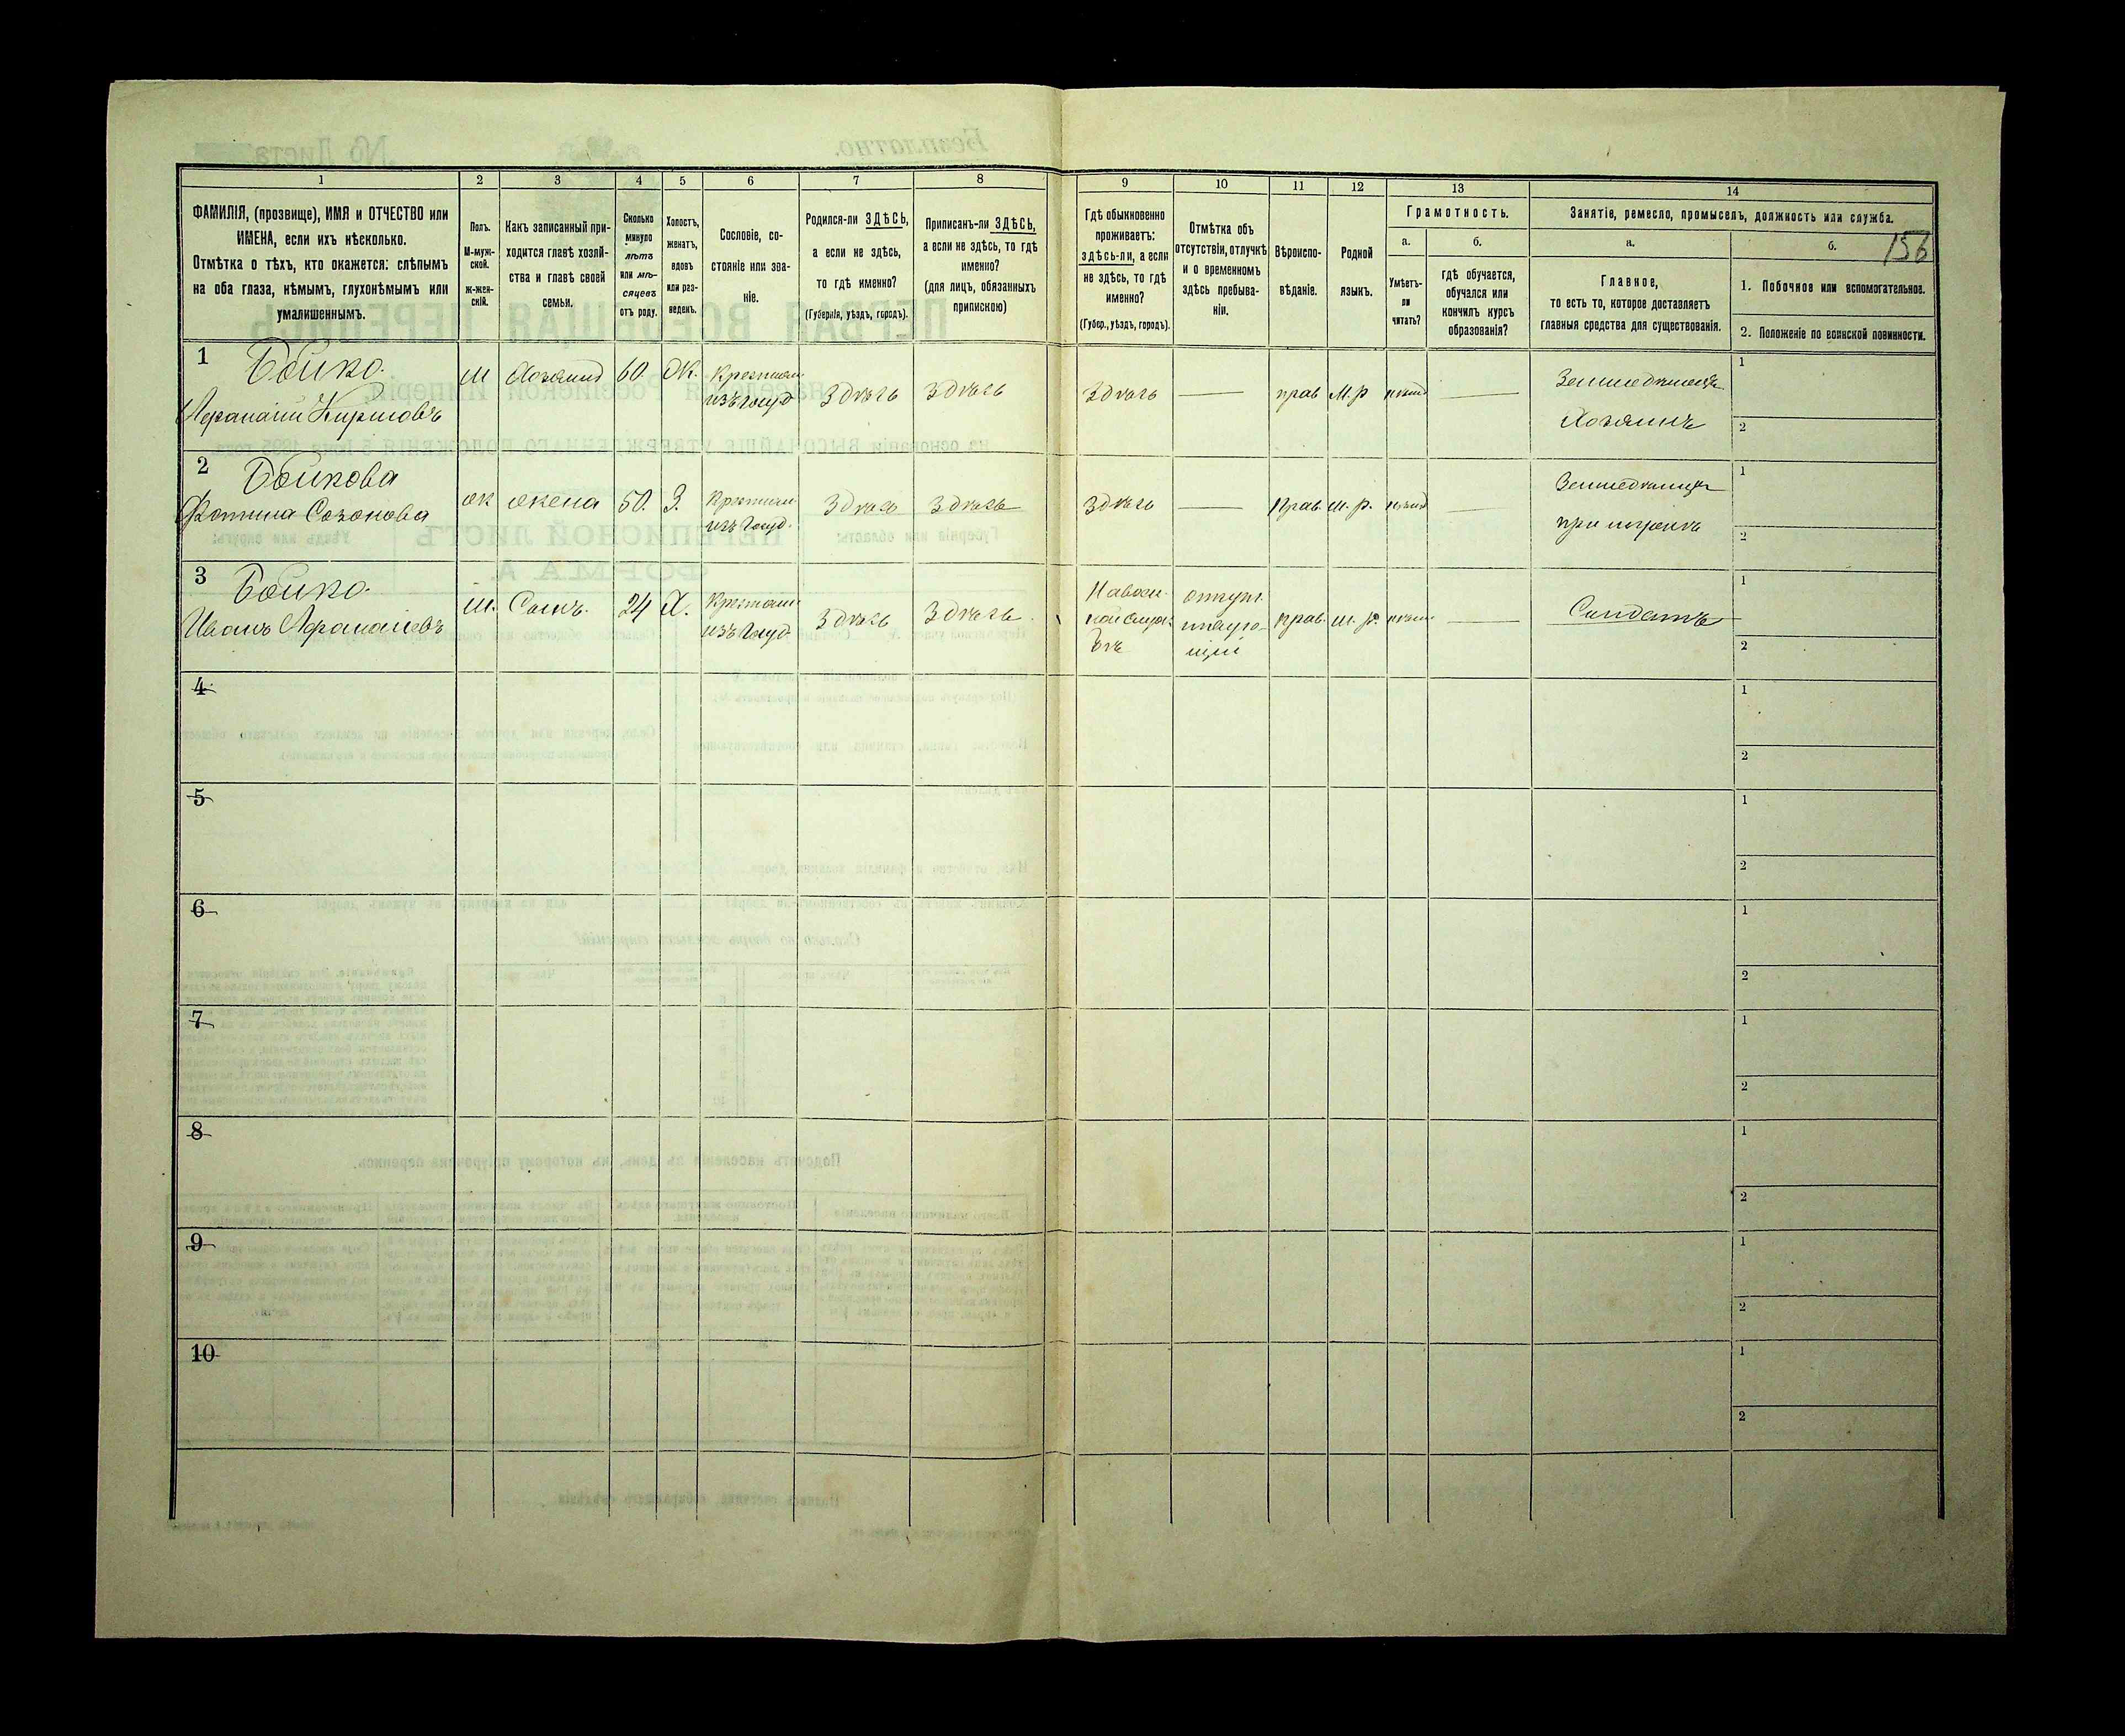 1 2 3 4 5 6 7 8 9 10 11 12 13 14
ФАМИЛІЯ, (прозвище), ИМЯ и ОТЧЕСТВО или
ИМЕНА, если ихъ нѣсколько.
Отмѣтка о тѣхъ, кто окажется: слѣпымъ
на оба глаза, нѣмымъ, глухонѣмымъ или
умалишеннымъ.
Полъ.
М-муж-
ской.
ж-жен-
скій.
Какъ записанный при-
ходится главѣ хозяй-
ства и главѣ своей
семьи.
Сколько
минуло
лѣтъ
или мѣ-
сяцевъ
отъ роду.
Холостъ,
женатъ,
вдовъ
или раз-
веденъ.
Сословіе, со-
стояніе или зва-
ніе.
Родился-ли ЗДѢСЬ,
а если не здѣсь,
то гдѣ именно?
(Губернія, уѣздъ, городъ).
Приписанъ-ли ЗДѢСЬ,
а если не здѣсь, то гдѣ
именно?
(для лицъ, обязанныхъ
припискою)
Гдѣ обыкновенно
проживаетъ:
здѣсь-ли, а если
не здѣсь, то гдѣ
именно?
(Губер., уѣздъ, городъ).
Отмѣтка объ
отсутствіи, отлучкѣ
и о временномъ
здѣсь пребыва-
ніи.
Вѣроиспо-
вѣданіе.
Родной
языкъ.
Грамотность.
а.
Умѣетъ-
ли
читать?
б.
гдѣ обучается,
обучался или
кончилъ курсъ
образованія?
Занятіе, ремесло, промыселъ, должность или служба.
а.
Главное,
то есть то, которое доставляетъ
главныя средства для существованія.
б.
156
1. Побочное или вспомогательное.
2. Положеніе по воинской повинности.
1 Бойко.
Афанасій Кириловъ
м
Хозяинъ
60
Ж.
Крестьян
изъ госуд
Здѣсь
Здѣсь
Здѣсь
прав
М.р
Земледѣлецъ
Хозяинъ
1
2
2 Бойкова
Фотина Созонова
ж
жена
50.
З.
Крестьян
изъ госуд.
Здѣсь
Здѣсь
Здѣсь
Прав.
м.р.
Земледѣлица
при мужѣ
1
2
3 Бойко.
Иванъ Афанасіевъ
м.
Сынъ.
24
Х.
Крестьян
изъ госуд
Здѣсь
Здѣсь
прав.
м.р.
Солдатъ
1
2
4
1
2
5
1
2
6
1
2
7
1
2
8
1
2
9
1
2
10
1
2